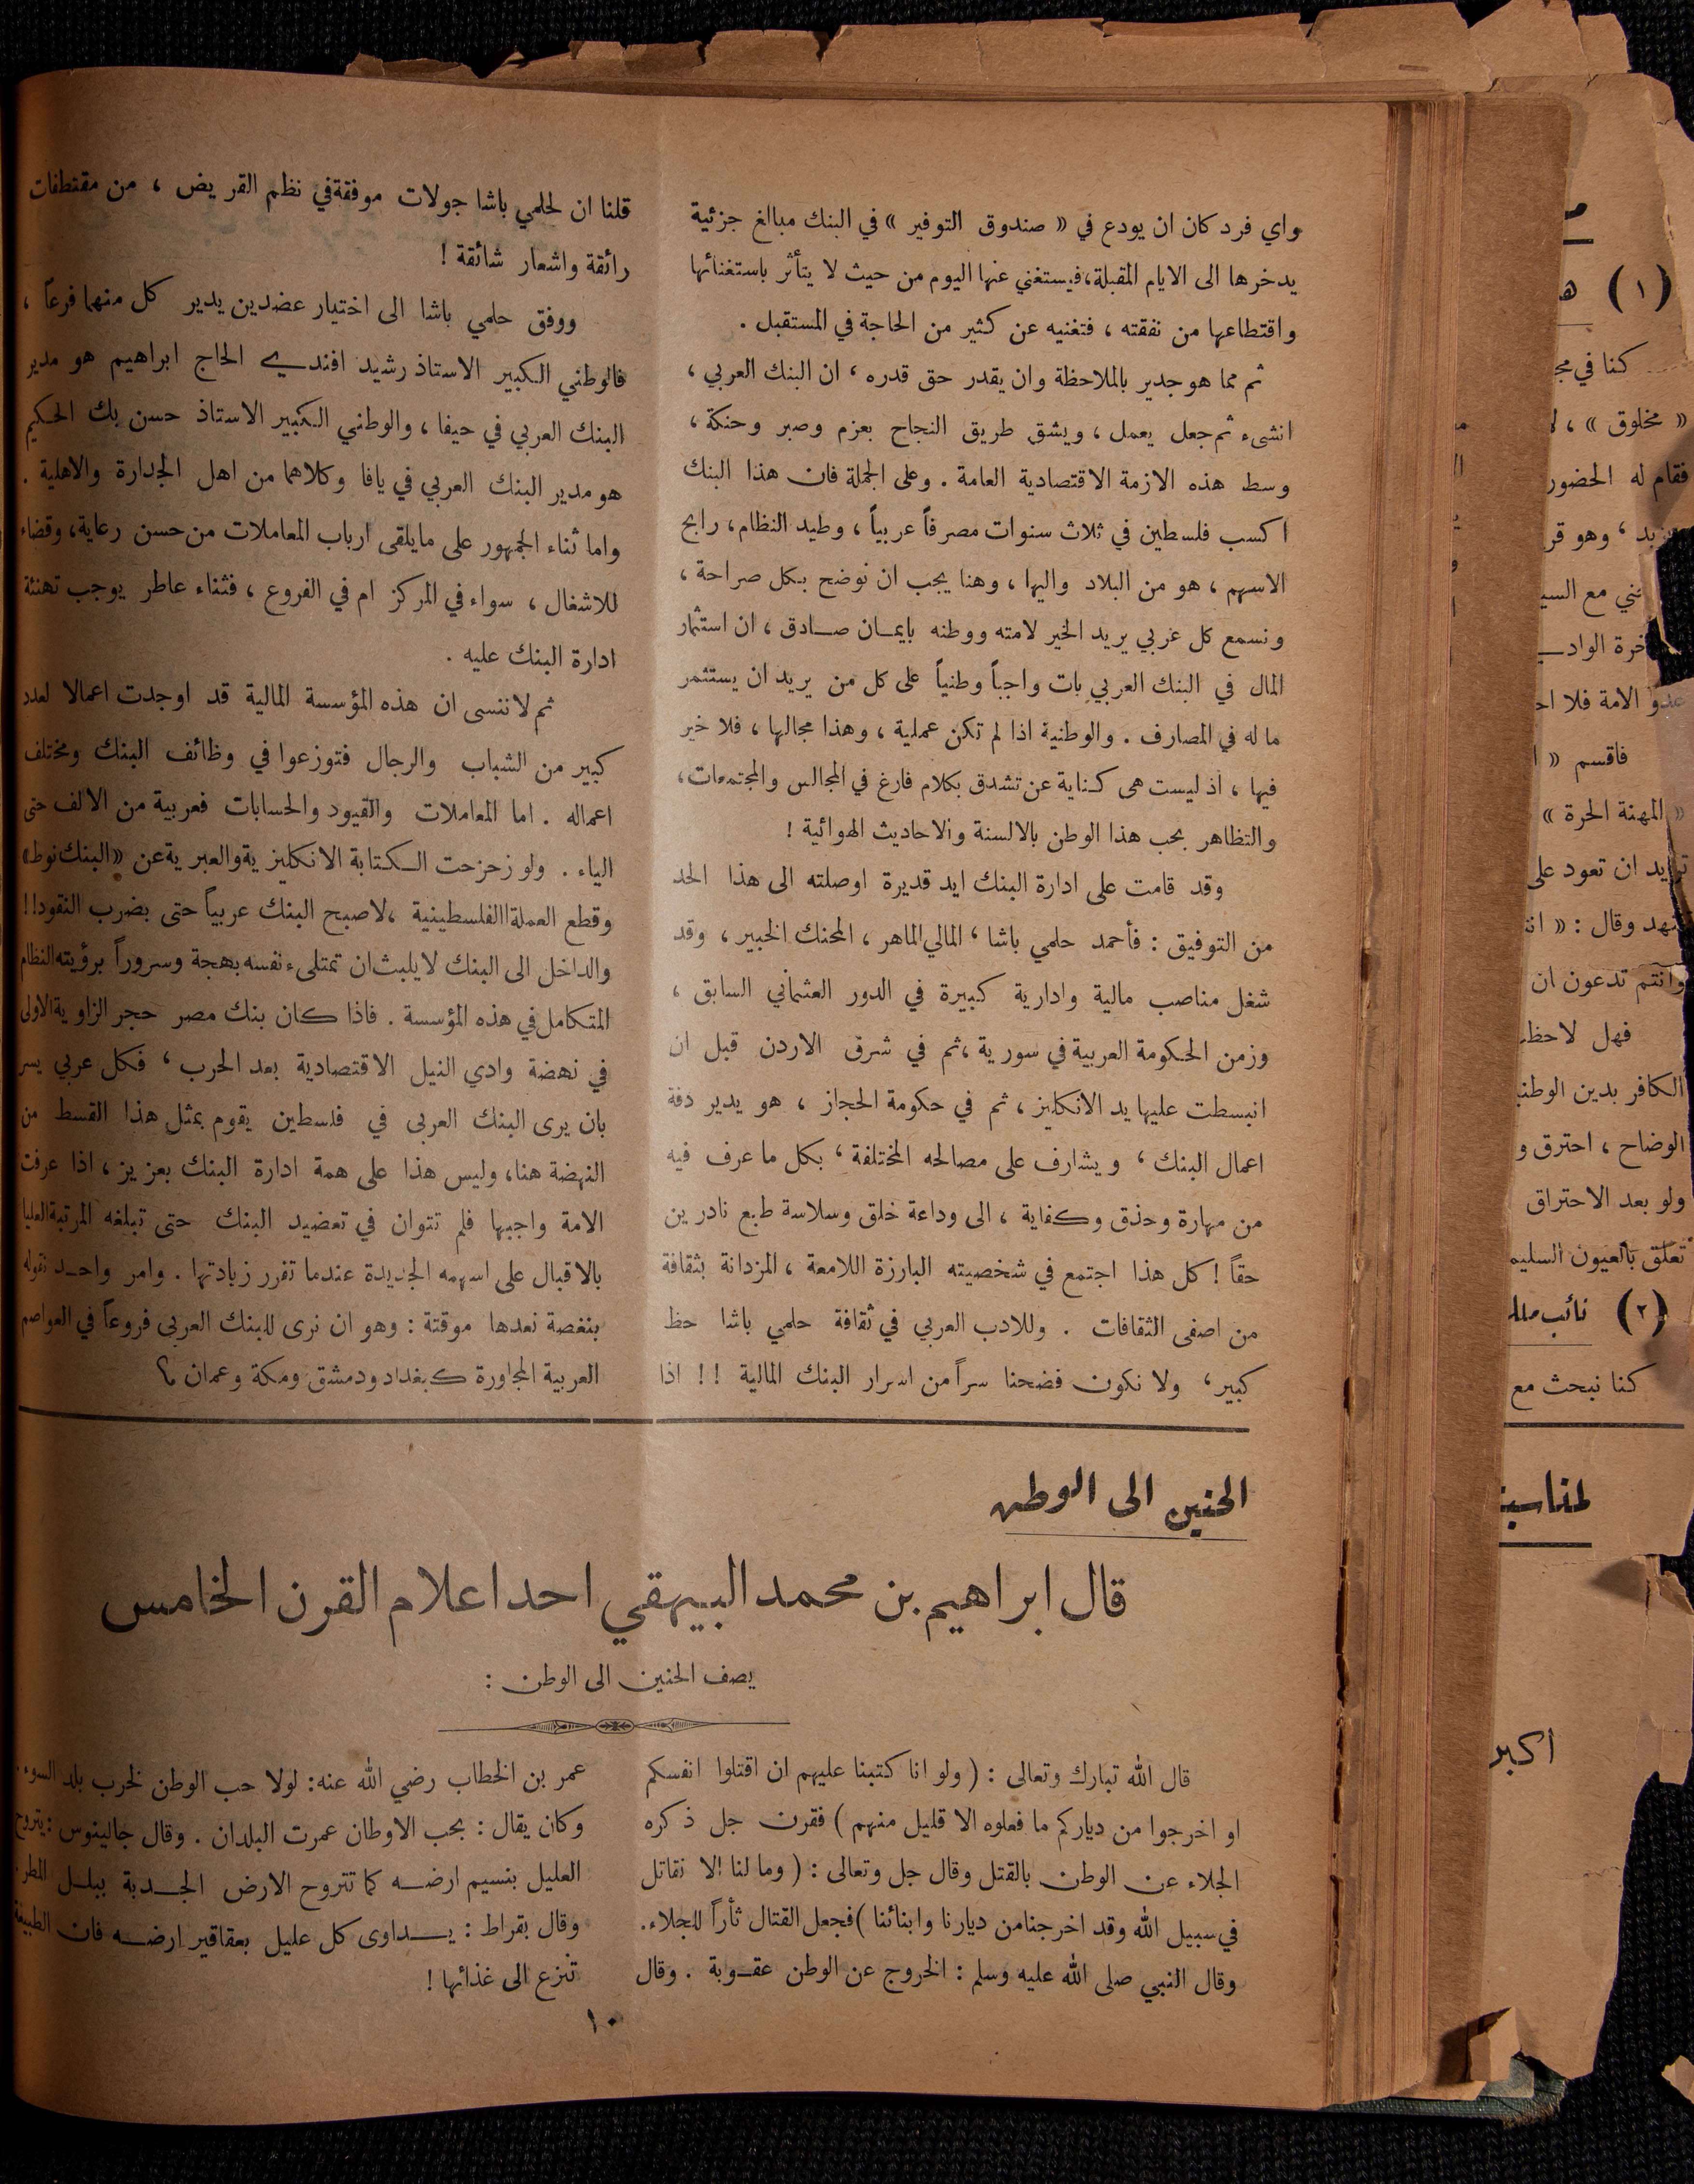 واي فرد كان ان يودع في « صندوق التوفير » في البنك مبالغ جزئية
يدخرها الى الايام المقبلة، فيستغني عنها اليوم من حيث لا يتأثر باستغنائها
واقتطاعها من نفقته ، فتغنيه عن كثير من الحاجة في المستقبل .
ثم مما هو جدير بالملاحظة وان يقدر حق قدره ، ان البنك العربي ،
انشىء ثم جعل يعمل ، ويشق طريق النجاح بعزم وصبر وحنكة ،
وسط هذه الازمة الاقتصادية العامة . وعلى الجملة فان هذا البنك
اكسب فلسطين في ثلاث سنوات مصرفاً عربياً ، وطيد النظام ، رابح
الاسهم ، هو من البلاد واليها ، وهنا يجب ان نوضح بكل صراحة ،
ونسمع كل عربي يريد الخير لامته ووطنه بايمان صادق ، ان استثمار
المال في البنك العربي بات واجباً وطنياً على كل من يريد ان يستثمر
ماله في المصارف . والوطنية اذا لم تكن عملية ، وهذا مجالها ، فلا خير
فيها ، اذ ليست هى كناية عن تشدق بكلام فارغ في المجالس والمجتمعات ،
والتظاهر بحب هذا الوطن بالالسنة والاحاديث الهوائية !
وقد قامت على ادارة البنك ايد قديرة اوصلته الى هذا الحد
من التوفيق : فأحمد حلمي باشا ، المالي الماهر ، المحنك الخبير ، وقد
شغل مناصب مالية وادارية كبيرة في الدور العثماني السابق ،
وزمن الحكومة العربية في سورية ، ثم في شرق الاردن قبل ان
انبسطت عليها يد الانكليز ، ثم في حكومة الحجاز ، هو يدير دفة
اعمال البنك ، ويشارف على مصالحه المختلفة ، بكل ما عرف فيه
من مهارة وحذق وكفاية ، الى وداعة خلق وسلاسة طبع نادرين
حقاً ! كل هذا اجتمع في شخصيته البارزة اللامعة ، المزدانة بثقافة
من اصفى الثقافات . وللادب العربي في ثقافة حلمي باشا حظ
كبير ، ولا نكون فضحنا سراً من اسرار البنك المالية !! اذا
قلنا ان لحلمي باشا جولات موفقة في نظم القريض ، من مقتطفات
رائقة واشعار شائقة !
ووفق حلمي باشا الى اختيار عضدين يدير كل منهما فرعاً ،
فالوطني الكبير الاستاذ رشيد افندي الحاج ابراهيم هو مدير
البنك العربي في حيفا ، والوطني الكبير الاستاذ حسن بك الحكيم
هو مدير البنك العربي في يافا وكلاهما من اهل الجدارة والاهلية .
واما ثناء الجمهور على مايلقى ارباب المعاملات من حسن رعاية ، وقضاء
للاشغال ، سواء في المركز ام في الفروع ، فثناء عاطر يوجب تهنئة
ادارة البنك عليه .
ثم لا ننسى ان هذه المؤسسة المالية قد اوجدت اعمالا لعدد
كبير من الشباب والرجال فتوزعوا في وظائف البنك ومختلف
اعماله . اما المعاملات والقيود والحسابات فعربية من الالف حتى
الياء . ولو زحزحت الكتابة الانكليزية والعبرية عن «البنك نوط»
وقطع العملة االفلسطينية ، لاصبح البنك عربياً حتى بضرب النقود!!
والداخل الى البنك لا يلبث ان تمتلىء نفسه بهجة وسروراً برؤيته النظام
المتكامل في هذه المؤسسة . فاذا كان بنك مصر حجر الزاوية الاولى
في نهضة وادي النيل الاقتصادية بعد الحرب ، فكل عربي يسر
بان يرى البنك العربى في فلسطين يقوم بمثل هذا القسط من
النهضة هنا ، وليس هذا على همة ادارة البنك بعزيز ، اذا عرفت
الامة واجبها فلم تتوان في تعضيد البنك حتى تبلغه المرتبة العليا
بالاقبال على اسهمه الجديدة عندما تقرر زيادتها . وامر واحد نقوله
بنغصة نعدها موقتة : وهو ان نرى للبنك العربى فروعاً في العواصم
العربية المجاورة كبغداد ودمشق ومكة وعمان ؟
الحنين الى الوطن
قال ابراهيم بن محمد البيهقي احد اعلام القرن الخامس
يصف الحنين الى الوطن :
قال الله تبارك وتعالى : ( ولو انا كتبنا عليهم ان اقتلوا انفسكم
او اخرجوا من دياركم ما فعلوه الا قليل منهم ) فقرن جل ذكره
الجلاء عن الوطن بالقتل وقال جل وتعالى : ( وما لنا الا نقاتل
في سبيل الله وقد اخرجنا من ديارنا وابنائنا ) فجعل القتال ثأراً للجلاء .
وقال النبي صلى الله عليه وسلم : الخروج عن الوطن عقوبة . وقال
عمر بن الخطاب رضي الله عنه : لولا حب الوطن لخرب بلد السوء .
وكان يقال : بحب الاوطان عمرت البلدان . وقال جالينوس : يتروح
العليل بنسيم ارضه كما تتروح الارض الجدبة ببلل المطر .
وقال بقراط : يداوى كل عليل بعقاقير ارضه فان الطبيعة
تنزع الى غذائها !
١٠
(١)
كنا في
« مخلوق » ،
فقام له الحضور
، وهو
مع
الامة فلا
فاقسم «
« المهنة الحرة »
ان تعود على
وقال : «
وانتم تدعون ان
فهل
الكافر بدين
الوضاح ، احترق و
ولو بعد الاحتراق
تعلق بالعيون
(٢) نائب
كنا نبحث مع
اكبر